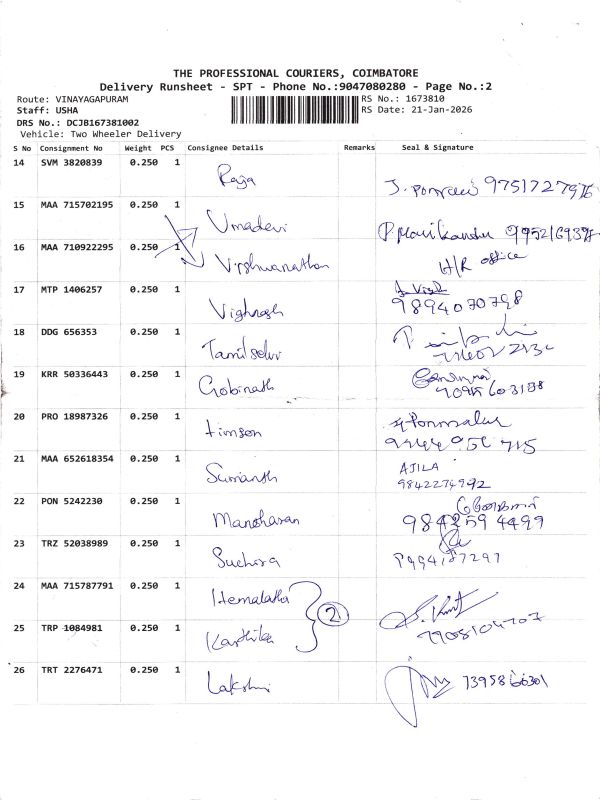 THE PROFESSIONAL COURIERS, COIMBATORE
Delivery Runsheet - SPT - Phone No.:9047080280 - Page No.:2
Route: VINAYAGAPURAM RS No.: 1673810
Staff: USHA RS Date: 21-Jan-2026
DRS No.: DCJB167381002
Vehicle: Two Wheeler Delivery
S No Consignment No Weight PCS Consignee Details Remarks Seal & Signature
14 SVM 3820839 0.250 1
Raja 9751727976
15 MAA 715702195 0.250 1
Umadevi
16 MAA 710922295 0.250 1
Vishwanathan H/R office
17 MTP 1406257 0.250 1
Vighnesh 9894070798
18 DDG 656353 0.250 1
Tamilselvi
19 KRR 50336443 0.250 1
Gobinath
20 PRO 18987326 0.250 1
timson
21 MAA 652618354 0.250 1
Sumanth AJILA
9842274992
22 PON 5242230 0.250 1
Manoharan 9842594499
23 TRZ 52038989 0.250 1
Suchira
24 MAA 715787791 0.250 1
Hemalatha 2
25 TRP 1084981 0.250 1
Karthika
26 TRT 2276471 0.250 1
Lakshmi